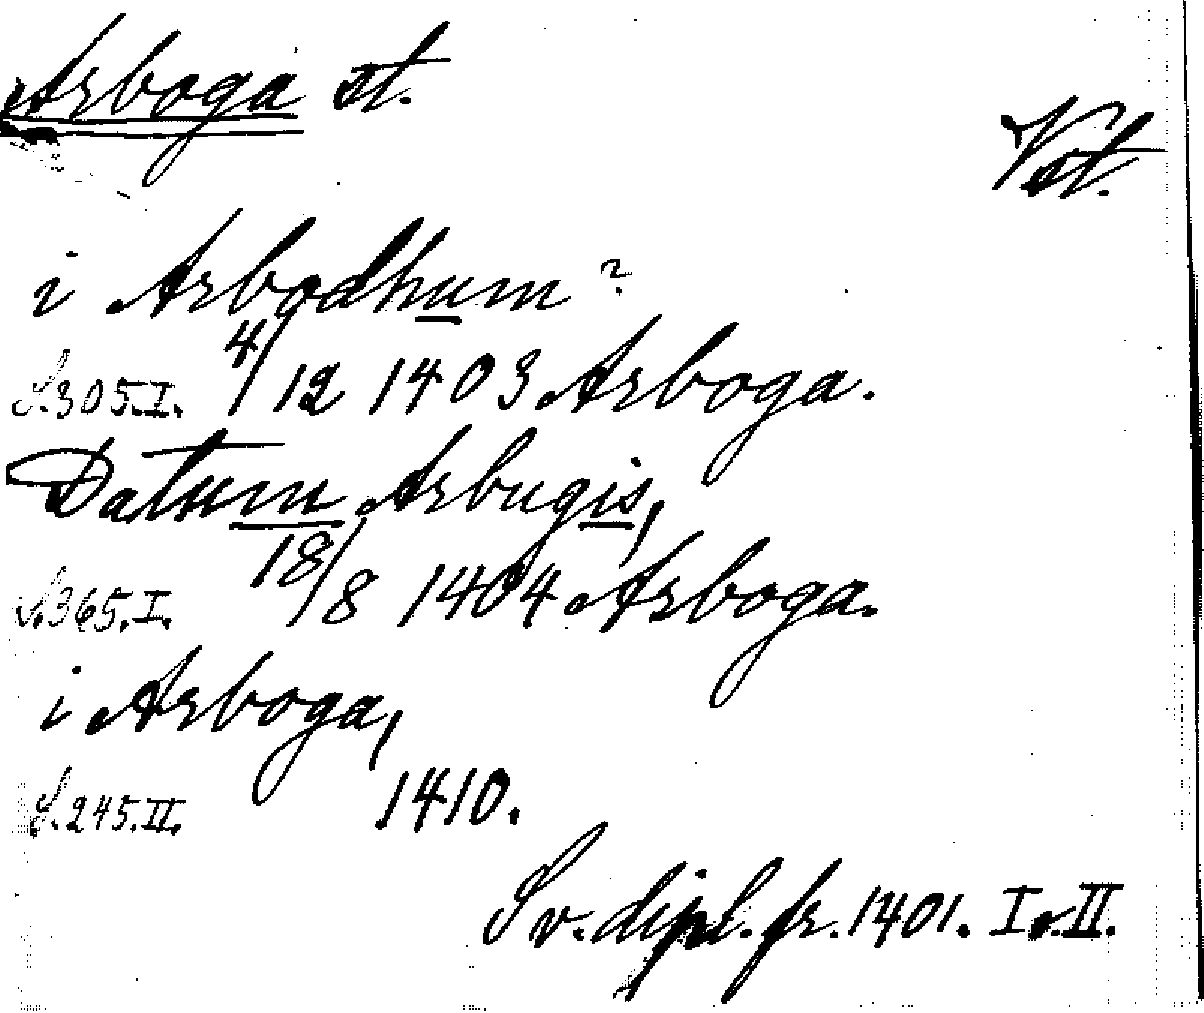 Arboga st.
Vst.
i Arbodhum?
S.305.I. 4/12 1403 Arboga.
Datum Arbugis,
S.365.I. 18/8 1404 Arboga.
i Arboga,
S.245.II. 1410.
Sv. dipl. fr. 1401. I o. II.